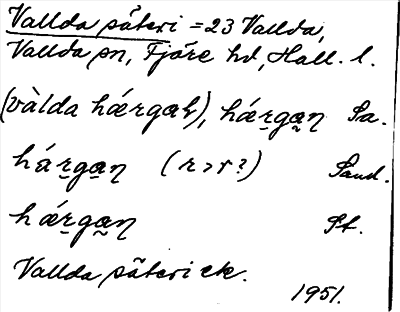 Vallda säteri = 23 Vallda,
Vallda sn, Fjäre hd, Hall. l.
(vàlda hǽrgah), hǽr̲ga̰ŋ Sa.
hár̲ga̲ŋ (r > r̄?) Sand.
hǽr̲ga̰ŋ St.
Vallda säteri ek.
1951.